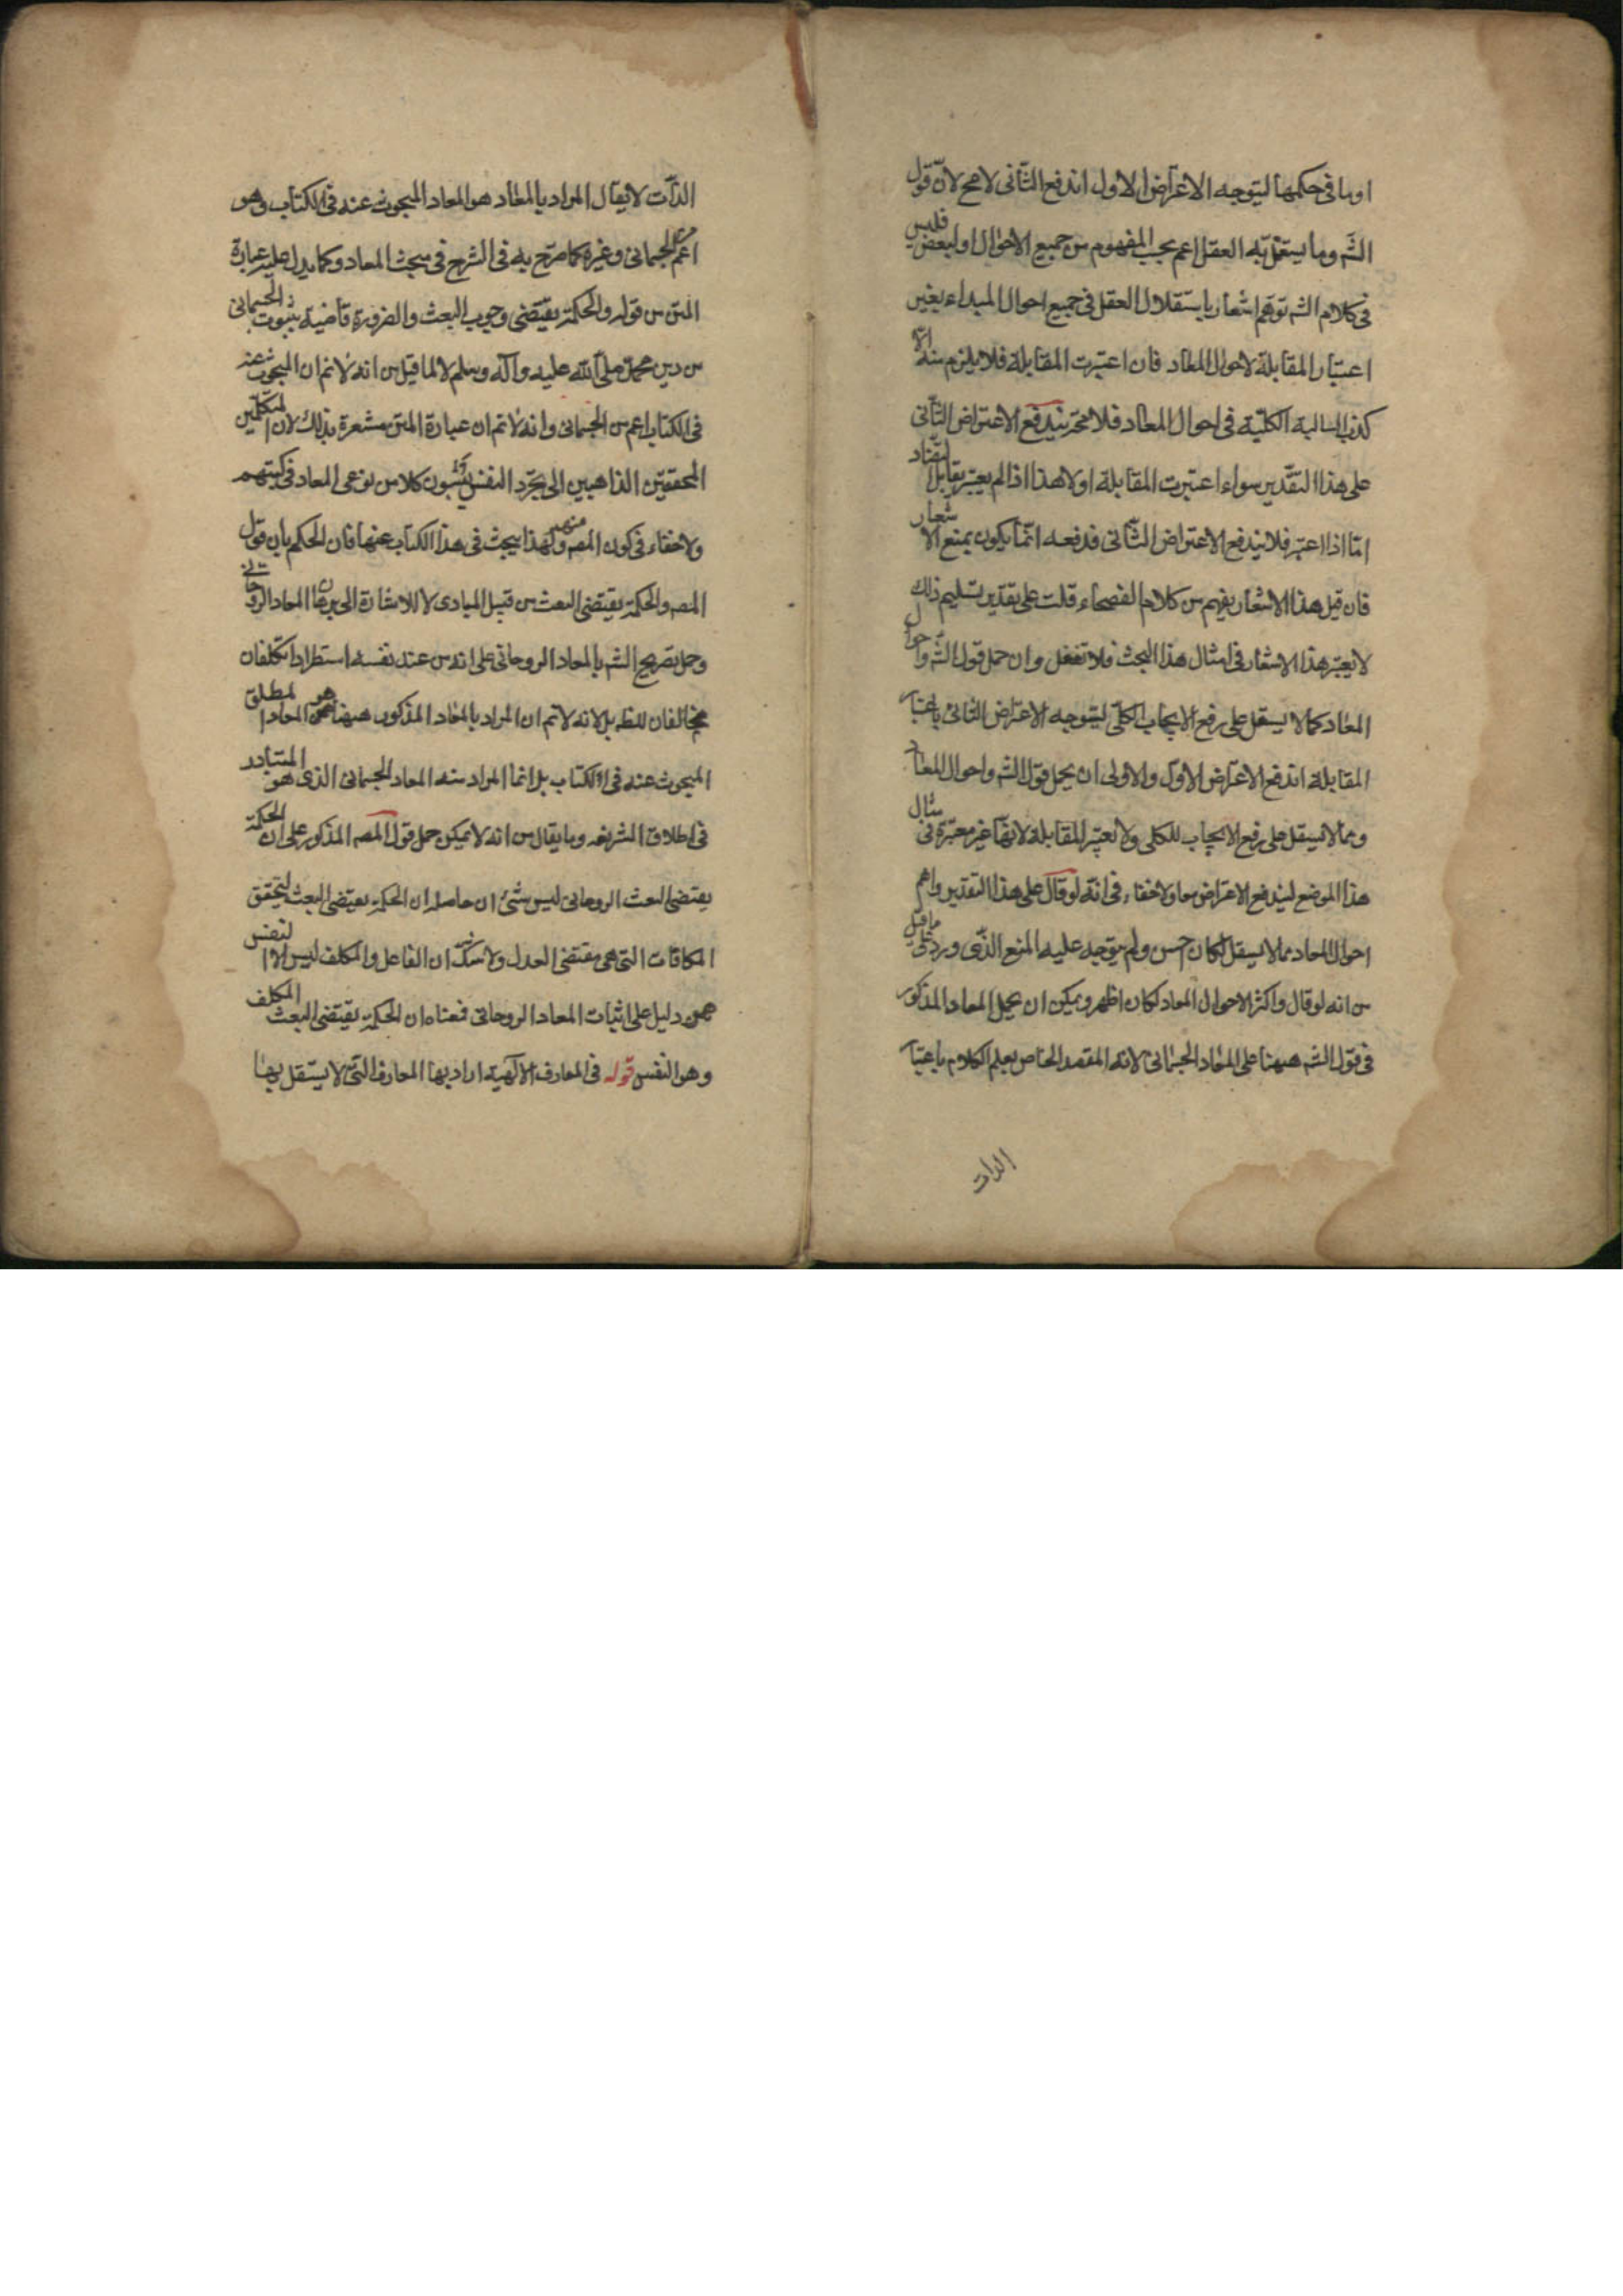 او ما فى حكمها ليتوجه الاعتراض الاول اندفع الثانى لامح لانّ قول
الشّ وما يستقلّ به العقل اعم بحب المفهوم من جميع الاحوال او لبعض فليس
فى كلام الشه توهّم اشعار باستقلال العقل فى جميع احوال المبداء بغير
اعتبار المقابلة لاحوال المعاد فان اعتبرت المقابلة فلا يلزم منه الّا
كذب السالبة الكلّية فى احوال المعاد فلا محّ يندفع الاعتراض الثّانى
على هذا التقدير سواء اعتبرت المقابلة او لا هذا اذا لم يعتبر تقابل التضاد
امّا اذا اعتبر فلا يندفع الاعتراض الثّانى فدفعه انّما يكون بمنع الاشعار
فان قيل هذا الاشعار يفهم من كلام الفصحاء قلت على تقدير تسليم ذلك
لا يعتبر هذا الاشعار فى امثال هذا البحث فلا تغفل وان حمل قول الشّ واحوال
المعاد كما لا يستقل على رفع الايجاب الكلّى ليتوجه الاعتراض الثانى باعتبار
المقابلة اندفع الاعتراض الاول والاولى ان يحمل قول الشه واحوال المعاد
ومما لا يستقل على رفع الايجاب للكلى ولا تعتبر المقابلة لانّها غير معتبرة فى مثال
هذا الموضع ليندفع الاعتراض معا ولا خفاء فى انّه لو قال على هذا التقدير واهم
احوال المعاد مما لا يستقل لكان احسن ولم يتوجه عليه المنع الذّى ورد على ما قيل
من انه لو قال واكثر الاحوال المعاد لكان اظهر ويمكن ان يحمل المعاد المذكور
فى قول الشه ههنا على المعاد الجسمانى لانّه المقصد الخاص بعلم الكلام باعتبار
الذات
الذّات لا يقال المراد بالمعاد هو المعاد المبحوث عنه فى الكتاب وهو
اعم من الجسمانى وغيره كما صرّح به فى الشرح فى مبحث المعاد وكما يدل عليه عبارة
المتن من قوله والحكمة يقتضى وجوب البعث والضرورة قاضية بثبوت الجسمانى
من دين محمّد صلى اللّه عليه وآله وسلم لا لما قيل من انه لا نم ان المبحوث عنه
فى الكتاب اعم من الجسمانى وانه لا نم ان عبارة المتن مشعرة بذلك لان المتكلّمين
المحققين الذاهبين الى تجرّد النفس يثبتون كلا من نوعى المعاد فى كتبهم
ولا خفاء فى كون المصه منهم ولهذا يبحث فى هذا الكتاب عنها فان الحكم بان قول
المصه والحكمة يقتضى البعث من قبيل المبادى لا للاشارة الى برهان المعاد الروحانى
وحمل تصريح الشه بالمعاد الروحانى على انه من عند نفسه استطرادا تكلفان
مخالفان للظه بل لانه لا نم ان المراد بالمعاد المذكور ههنا هو المعاد المطلق
المبحوث عنه فى الكتاب بل انما المراد منه المعاد الجسمانى الذى هو المتبادر
فى اطلاق الشريعه وما يقال من انه لا يمكن حمل قول المصه المذكور على ان الحكمة
يقتضى البعث الروحانى ليس بشئ ان حاصله ان الحكمة يقتضى البعث لتحقق
المكافات التى هى مقتضى العدل ولا شكّ ان الفاعل والمكلف ليس الا النفس
فهو دليل على اثبات المعاد الروحانى فمعناه ان الحكمة يقتضى البعث المكلف
وهو النفس قوله فى المعارف الآلهية اراد بها المعارف التّى لا يستقل بها